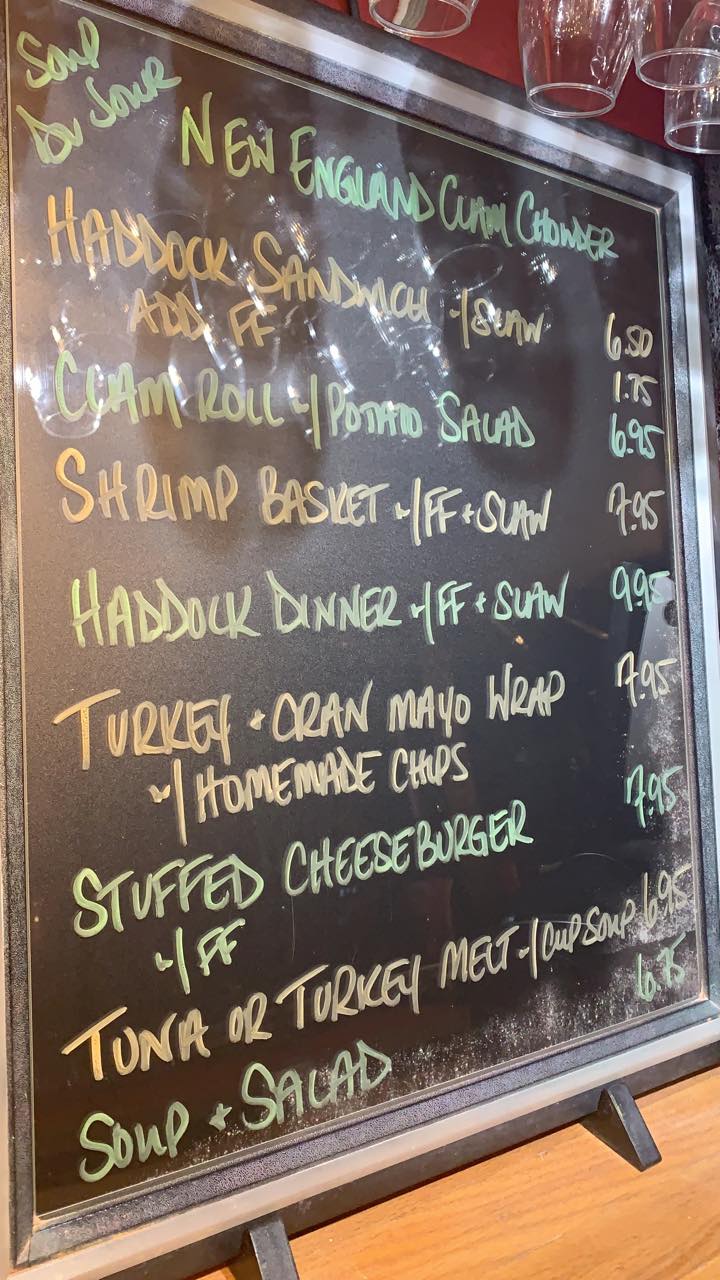 Soup
Du Jour
NEW ENGLAND CLAM CHOWDER
HADDOCK SANDWICH w/SLAW 6.50
ADD FF 1.75
CLAM ROLL w/POTATO SALAD 6.95
SHRIMP BASKET w/FF + SLAW 7.95
HADDOCK DINNER w/FF + SLAW 9.95
TURKEY + CRAN MAYO WRAP 7.95
w/HOMEMADE CHIPS
STUFFED CHEESEBURGER 7.95
w/FF
TUNA OR TURKEY MELT w/CUP SOUP 6.95
SOUP + SALAD 6.75